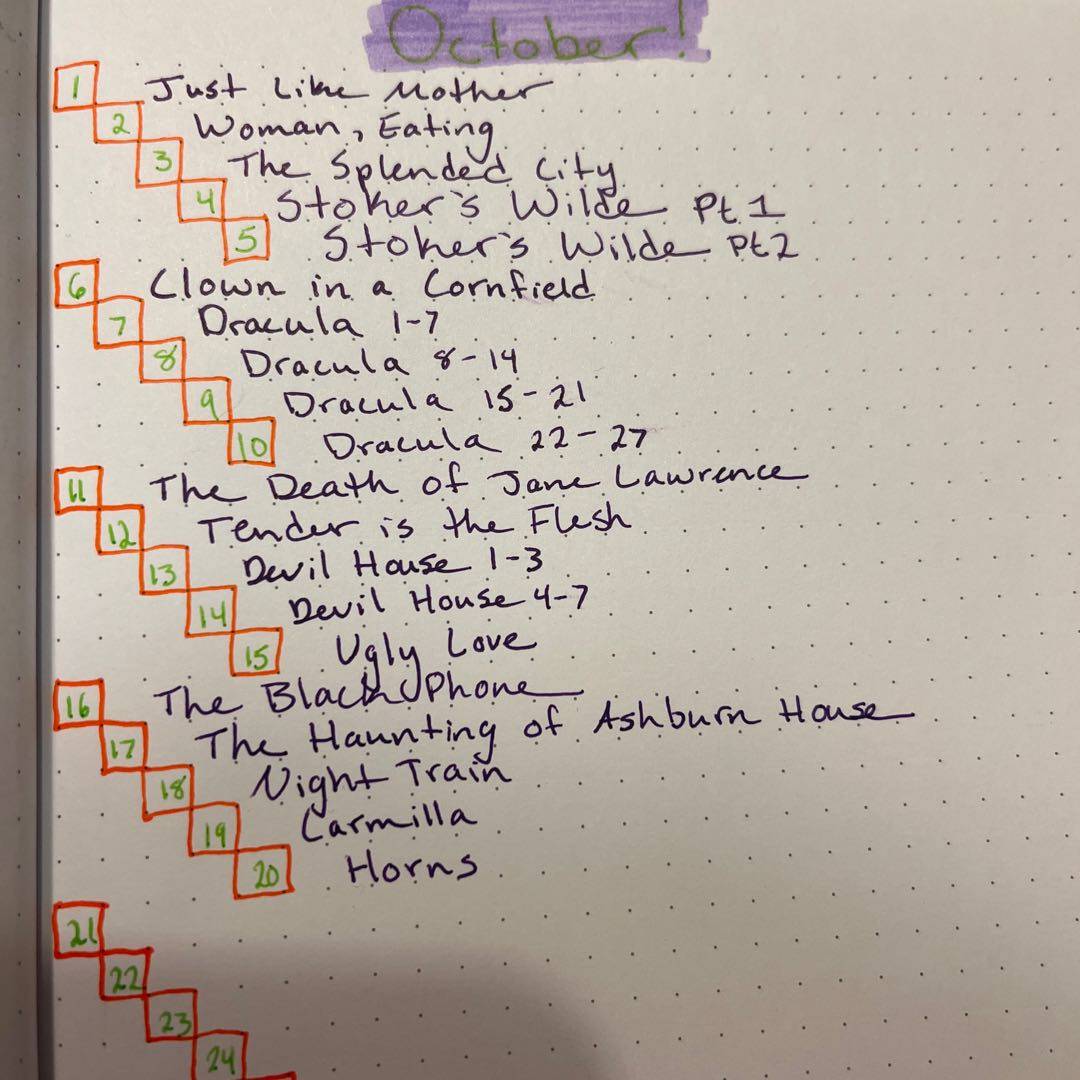 October!
1 Just Like Mother
2 Woman, Eating
3 The Splended City
4 Stoker's Wilde Pt 1
5 Stoker's Wilde Pt 2
6 Clown in a Cornfield
7 Dracula 1-7
8 Dracula 8-14
9 Dracula 15-21
10 Dracula 22-27
11 The Death of Jane Lawrence
12 Tender is the Flesh
13 Devil House 1-3
14 Devil House 4-7
15 Ugly Love
16 The Black Phone
17 The Haunting of Ashburn House
18 Night Train
19 Carmilla
20 Horns
21
22
23
24